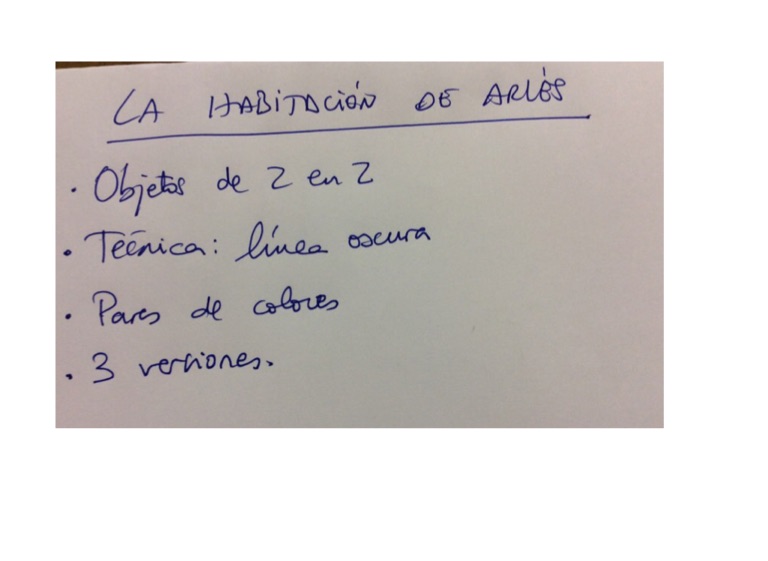 LA HABITACIÓN DE ARLÉS
• Objetos de 2 en 2
• Técnica: línea oscura
• Pares de colores
• 3 versiones.